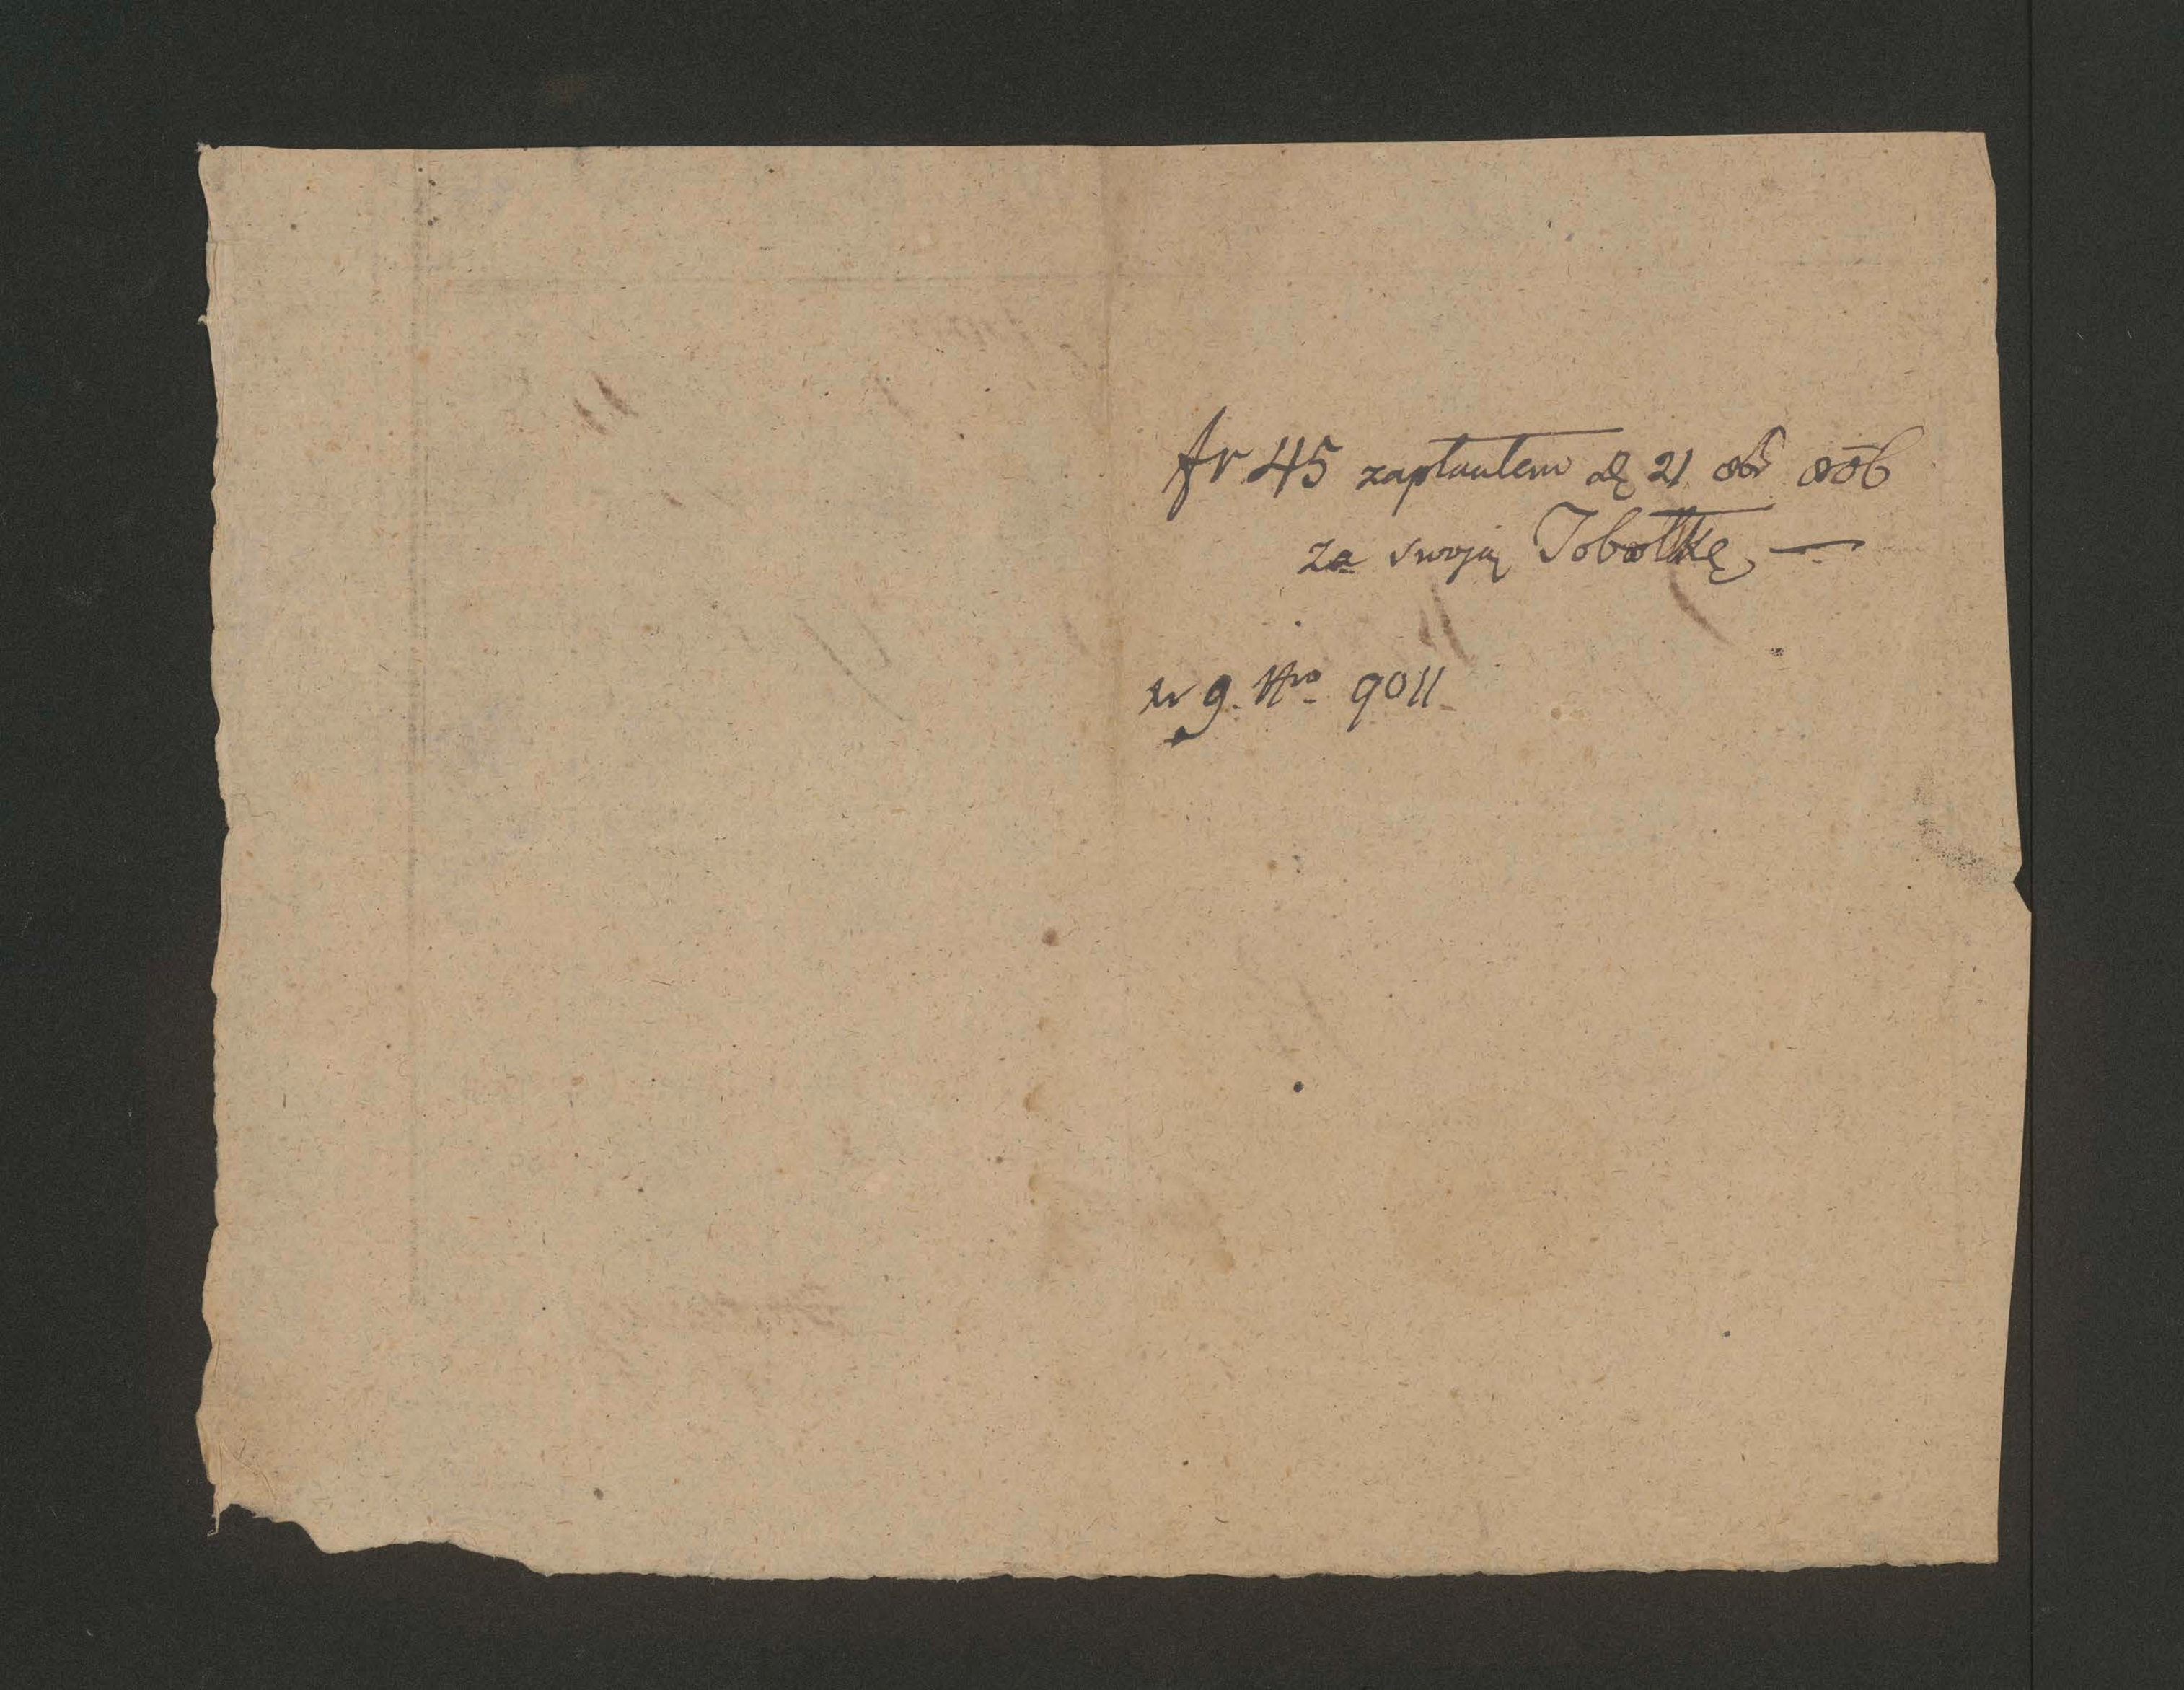 fr 45 zapłaułem d 21 8br 806
za swoją Jobołkę —
w g. Nro 9011